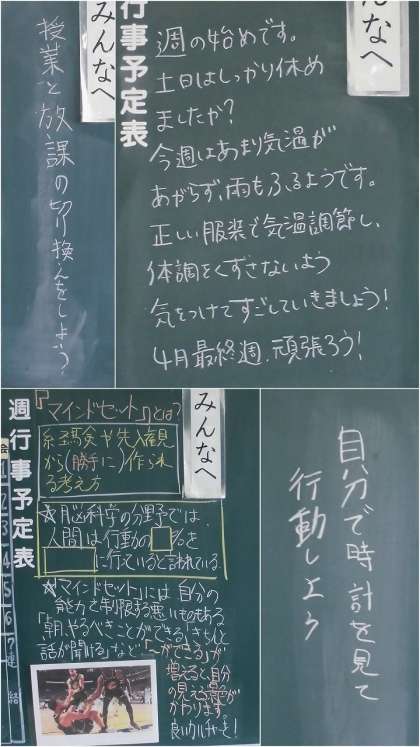 みんなへ
授業と放課の切り換えをしよう?
行事予定表
んなへ
週の始めです。
土日はしっかり休め
ましたか?
今週はあまり気温が
あがらず、雨もふるようです。
正しい服装で気温調節し、
体調をくずさないよう
気をつけてすごしていきましょう!
4月最終週、頑張ろう!
週行事予定表
1
2
3
4
5
6
7
連
絡
みんなへ
『マインドセット』とは?
経験や先入観
から(勝手に)作られ
る考え方
☆脳科学の分野では、
人間は行動の□%を
に行っていると言われている
☆『マインドセット』には自分の
能力を制限する悪いものもある
「朝、やるべきことができる」「きちんと
話が聞ける」など「~ができる」が
増えると、自分
の見える
かわります。
良いカルチャーを!
自分で時計を見て
行動しよう